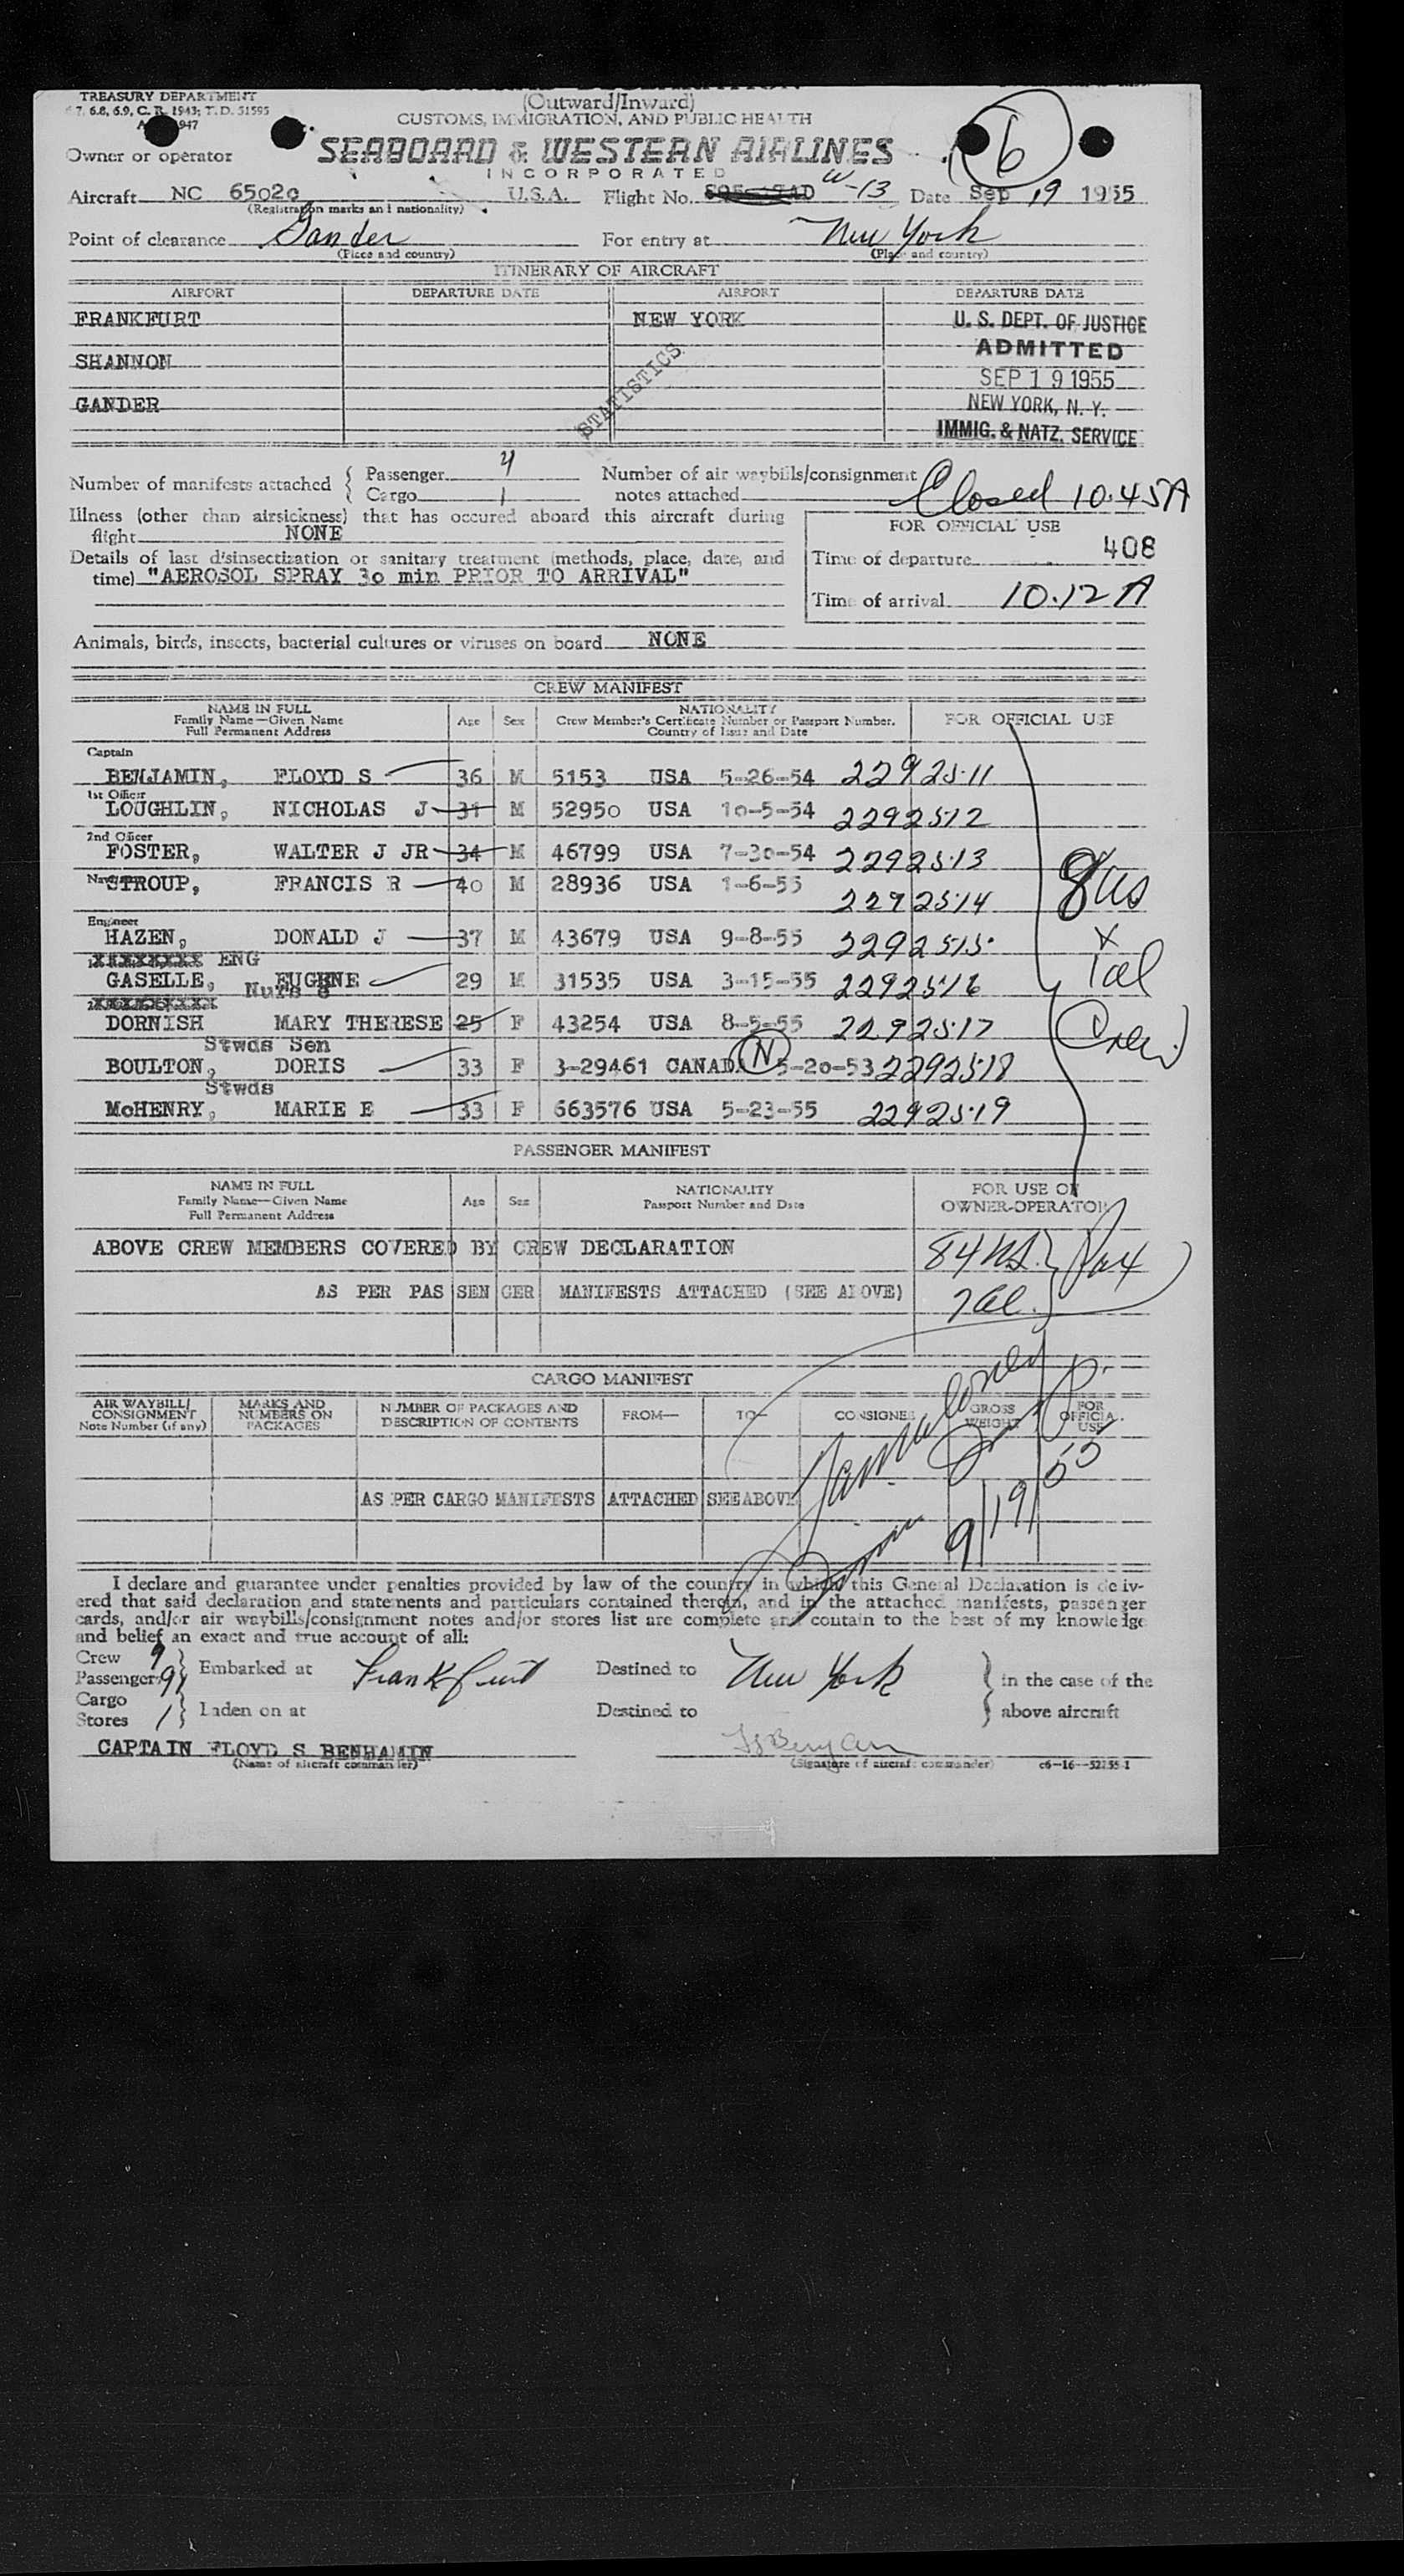 TREASURY DEPARTMENT
6.7, 6.8, 6.9, C. R. 1943; T. D. 51595
947
(Outward/Inward)
CUSTOMS, IMMIGRATION, AND PUBLIC HEALTH
6
Owner or operator SEABOARD & WESTERN AIRLINES
INCORPORATED
Aircraft NC 6502 U.S.A. Flight No. W-13 Date Sep 19 1955
(Registration marks and nationality)
Point of clearance Gander For entry at New York
(Place and country) (Place and country)
ITINERARY OF AIRCRAFT
AIRPORT DEPARTURE DATE AIRPORT DEPARTURE DATE
FRANKFURT NEW YORK U. S. DEPT. OF JUSTICE
ADMITTED
SHANNON
SEP 19 1955
STATISTICS
GANDER NEW YORK, N. Y.
IMMIG. & NATZ. SERVICE
Number of manifests attached { Passenger 4 Number of air waybills/consignment
Cargo 1 notes attached Closed 10.45A
Illness (other than airsickness) that has occured aboard this aircraft during
flight NONE
FOR OFFICIAL USE
Details of last disinsectization or sanitary treatment (methods, place, date, and
time) "AEROSOL SPRAY 3o min PRIOR TO ARRIVAL"
Time of departure 408
Time of arrival 10.12 A
Animals, birds, insects, bacterial cultures or viruses on board NONE
CREW MANIFEST
NAME IN FULL
Family Name—Given Name
Full Permanent Address
Age Sex
NATIONALITY
Crew Member's Certificate Number or Passport Number.
Country of Issue and Date
FOR OFFICIAL USE
Captain
BENJAMIN, FLOYD S 36 M 5153 USA 5-26-54 2292511
1st Officer
LOUGHLIN, NICHOLAS J 31 M 5295o USA 1o-5-54 2292512
2nd Officer
FOSTER, WALTER J JR 34 M 46799 USA 7-3o-54 2292513
STROUP, FRANCIS R 4o M 28936 USA 1-6-55
2292514
8 us
Engineer
HAZEN, DONALD J 37 M 43679 USA 9-8-55 2292515
ENG
GASELLE, EUGENE 29 M 31535 USA 3-15-55 2292516
1 al
Nurse
DORNISH MARY THERESE 25 F 43254 USA 8-5-55 2292517
Crew
Stwds Sen
BOULTON, DORIS 33 F 3-29461 CANADA N 5-20-53 2292518
Stwds
McHENRY, MARIE E 33 F 663576 USA 5-23-55 2292519
PASSENGER MANIFEST
NAME IN FULL
Family Name—Given Name
Full Permanent Address
Age Sex
NATIONALITY
Passport Number and Date
FOR USE OF
OWNER-OPERATOR
ABOVE CREW MEMBERS COVERED BY CREW DECLARATION 84 us. } Pax
AS PER PAS SEN GER MANIFESTS ATTACHED (SEE ABOVE) 7 al.
CARGO MANIFEST
AIR WAYBILL/
CONSIGNMENT
Note Number (if any)
MARKS AND
NUMBERS ON
PACKAGES
NUMBER OF PACKAGES AND
DESCRIPTION OF CONTENTS
FROM— TO— CONSIGNEE
GROSS
WEIGHT
FOR
OFFICIAL
USE
AS PER CARGO MANIFESTS ATTACHED SEE ABOVE
9/19/55
I declare and guarantee under penalties provided by law of the country in which this General Declaration is deliv-
ered that said declaration and statements and particulars contained therein, and in the attached manifests, passenger
cards, and/or air waybills/consignment notes and/or stores list are complete and contain to the best of my knowledge
and belief an exact and true account of all:
Crew 9
Passengers 91 } Embarked at Frankfurt Destined to New York } in the case of the
Cargo
Stores 1 } Laden on at Destined to } above aircraft
CAPTAIN FLOYD S BENHAMIN
(Name of aircraft commander) (Signature of aircraft commander)